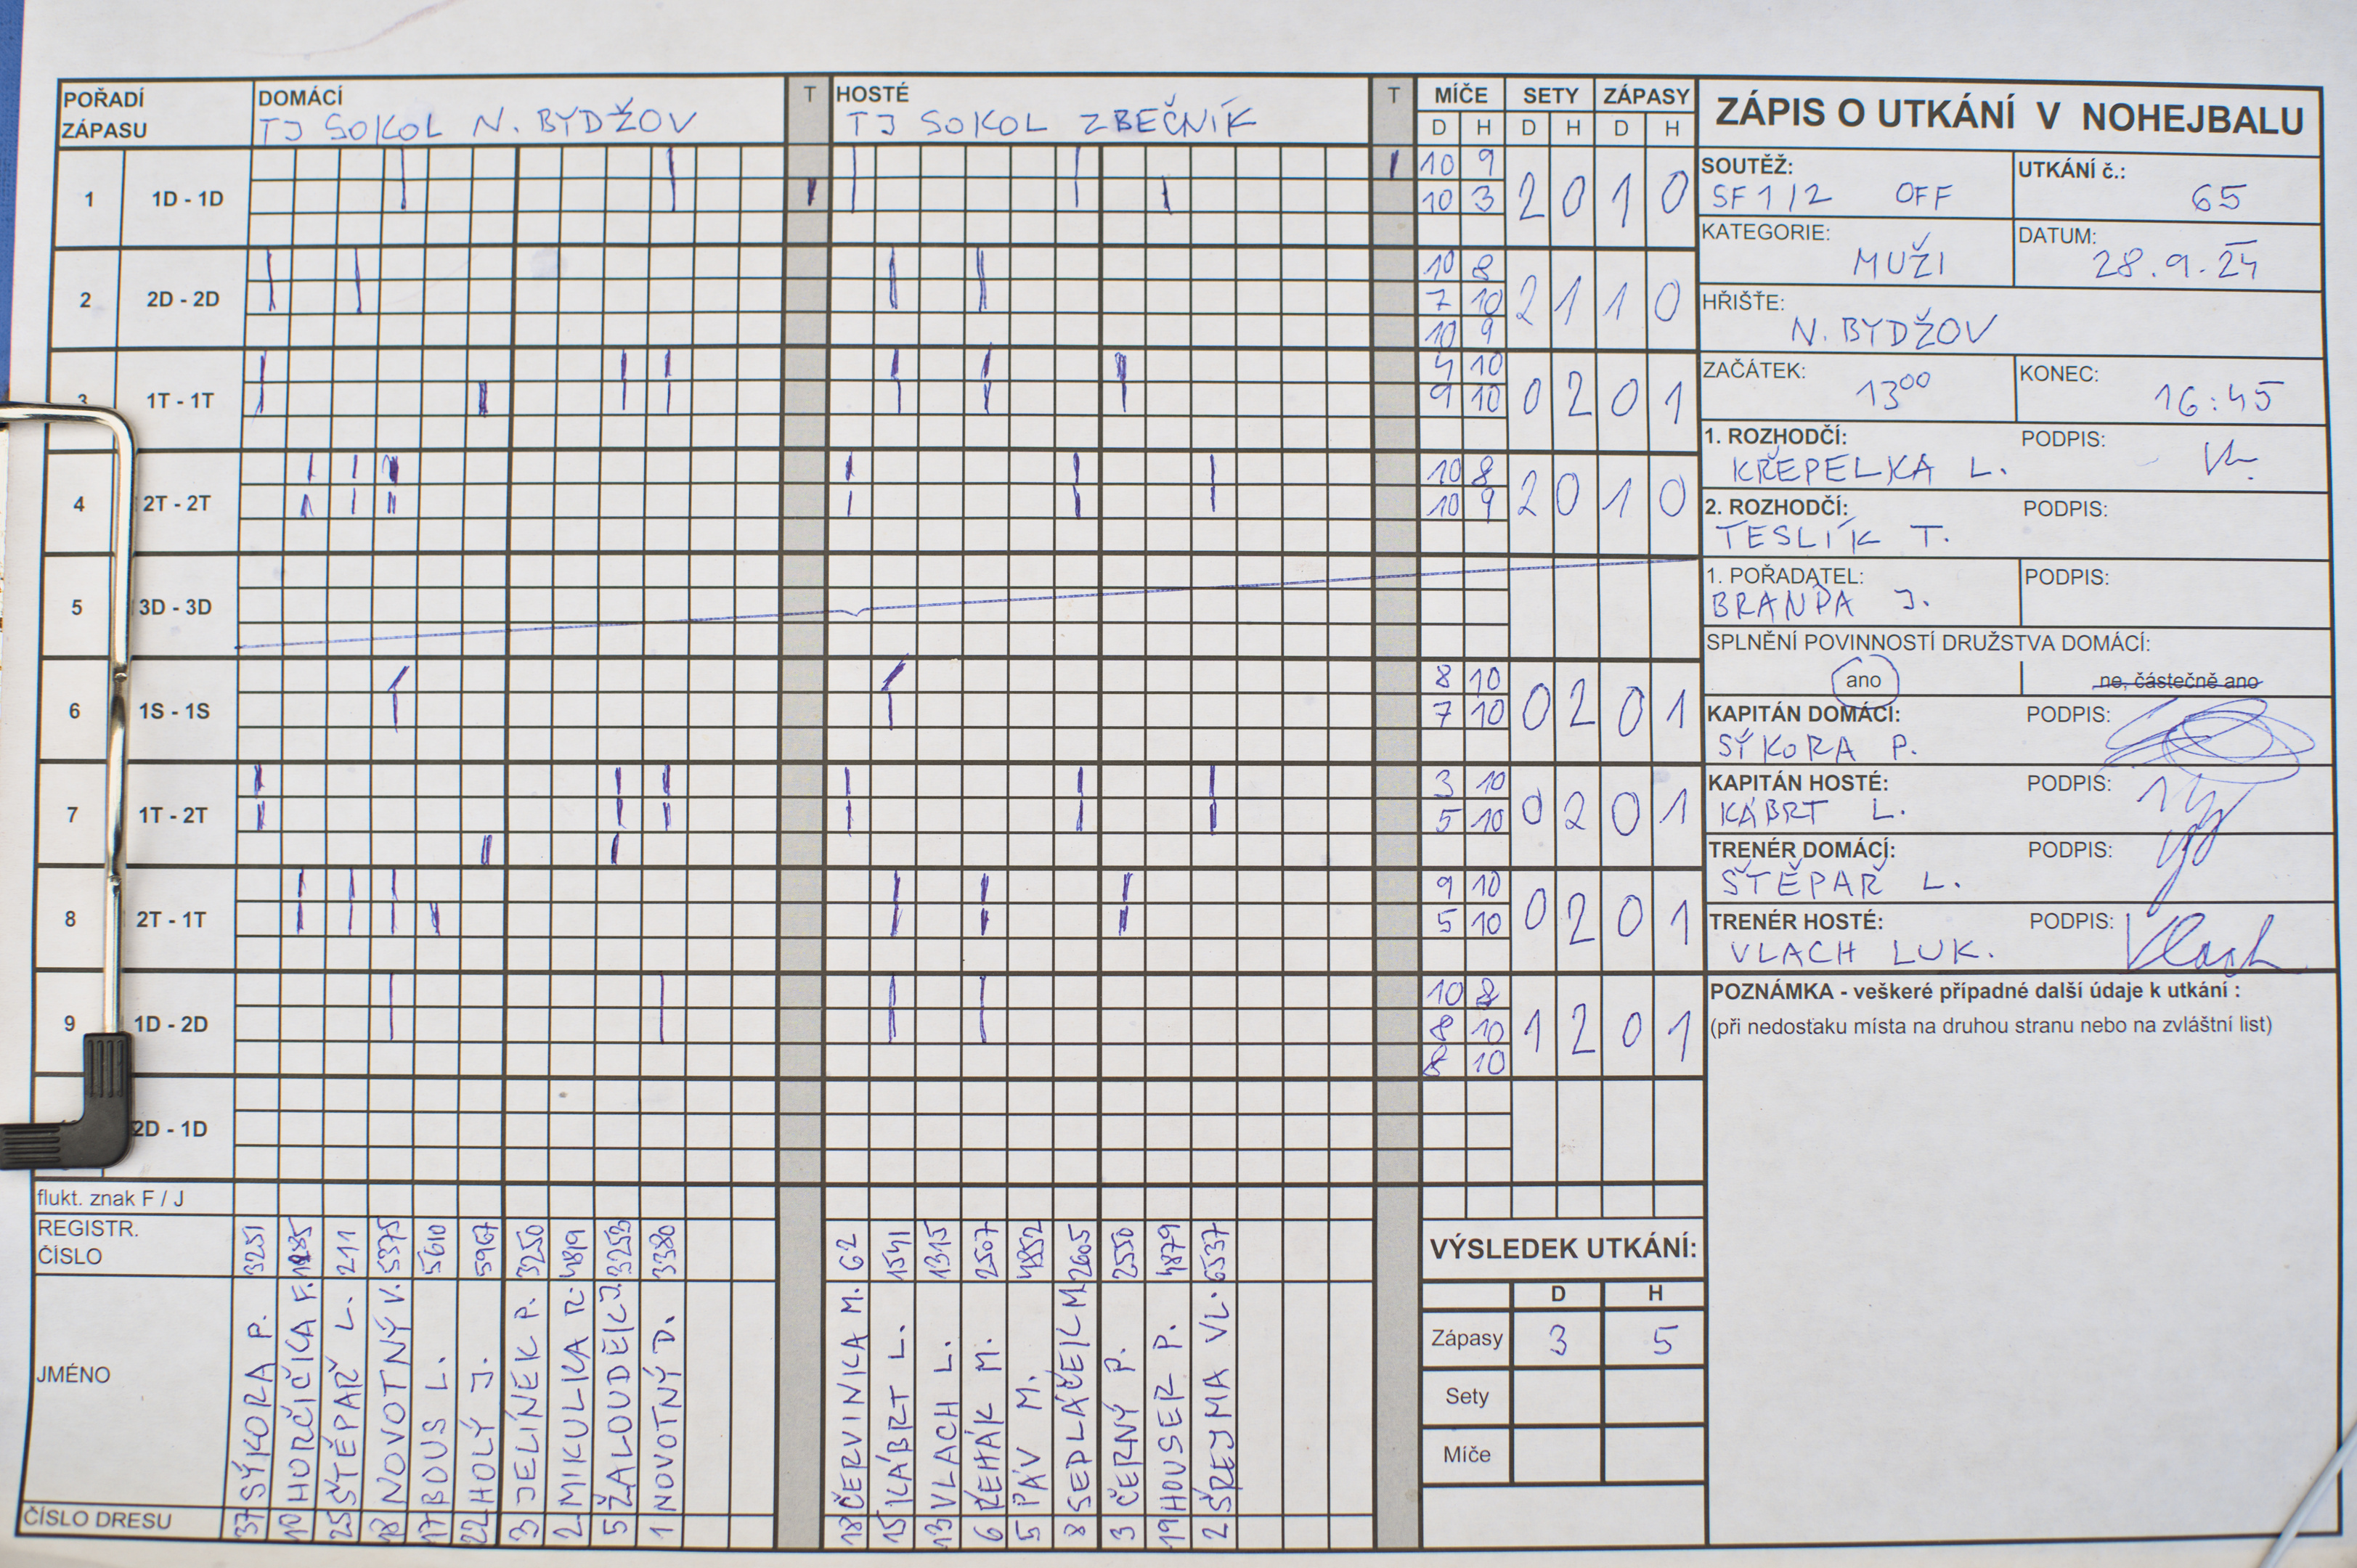 POŘADÍ ZÁPASU
DOMÁCÍ
TJ SOKOL N. BYDŽOV
T
HOSTÉ
TJ SOKOL ZBEČNÍK
T
MÍČE SETY ZÁPASY
D H D H D H
1 1D - 1D
10 9
10 3
2 0 1 0
2 2D - 2D
10 8
7 10
10 9
2 1 1 0
3 1T - 1T
4 10
9 10
0 2 0 1
4 2T - 2T
10 8
10 9
2 0 1 0
5 3D - 3D
6 1S - 1S
8 10
7 10
0 2 0 1
7 1T - 2T
3 10
5 10
0 2 0 1
8 2T - 1T
9 10
5 10
0 2 0 1
9 1D - 2D
10 8
8 10
8 10
1 2 0 1
2D - 1D
flukt. znak F / J
REGISTR. ČÍSLO
3251
211
5375
5610
5967
3250
4819
3253
3380
62
1541
1315
2507
4852
2605
2550
4879
6537
JMÉNO
SÝKORA P.
HORČIČKA F.
ŠTĚPAŘ L.
NOVOTNÝ V.
BOUS L.
HOLÝ J.
JELÍNEK P.
MIKULKA R.
ŽALOUDEK J.
NOVOTNÝ D.
ČERVINKA M.
KÁBRT L.
VLACH L.
ŘEHÁK M.
PÁV M.
SEDLÁČEK M.
ČERNÝ P.
HOUSER P.
ŠREJMA VL.
ČÍSLO DRESU
37 10 25 18 17 22 3 2 5 1
18 15 13 6 5 8 3 19 2
VÝSLEDEK UTKÁNÍ:
D H
Zápasy 3 5
Sety
Míče
ZÁPIS O UTKÁNÍ V NOHEJBALU
SOUTĚŽ:
SF 1/2 OFF
UTKÁNÍ č.:
65
KATEGORIE:
MUŽI
DATUM:
28.9.24
HŘIŠTE:
N. BYDŽOV
ZAČÁTEK:
13⁰⁰
KONEC:
16:45
1. ROZHODČÍ: PODPIS:
KŘEPELKA L.
2. ROZHODČÍ: PODPIS:
TESLÍK T.
1. POŘADATEL: PODPIS:
BRANDA J.
SPLNĚNÍ POVINNOSTÍ DRUŽSTVA DOMÁCÍ:
ano
ne, částečně ano
KAPITÁN DOMÁCÍ: PODPIS:
SÝKORA P.
KAPITÁN HOSTÉ: PODPIS:
KÁBRT L.
TRENÉR DOMÁCÍ: PODPIS:
ŠTĚPAŘ L.
TRENÉR HOSTÉ: PODPIS:
VLACH LUK.
Vlach
POZNÁMKA - veškeré případné další údaje k utkání :
(při nedosťaku místa na druhou stranu nebo na zvláštní list)